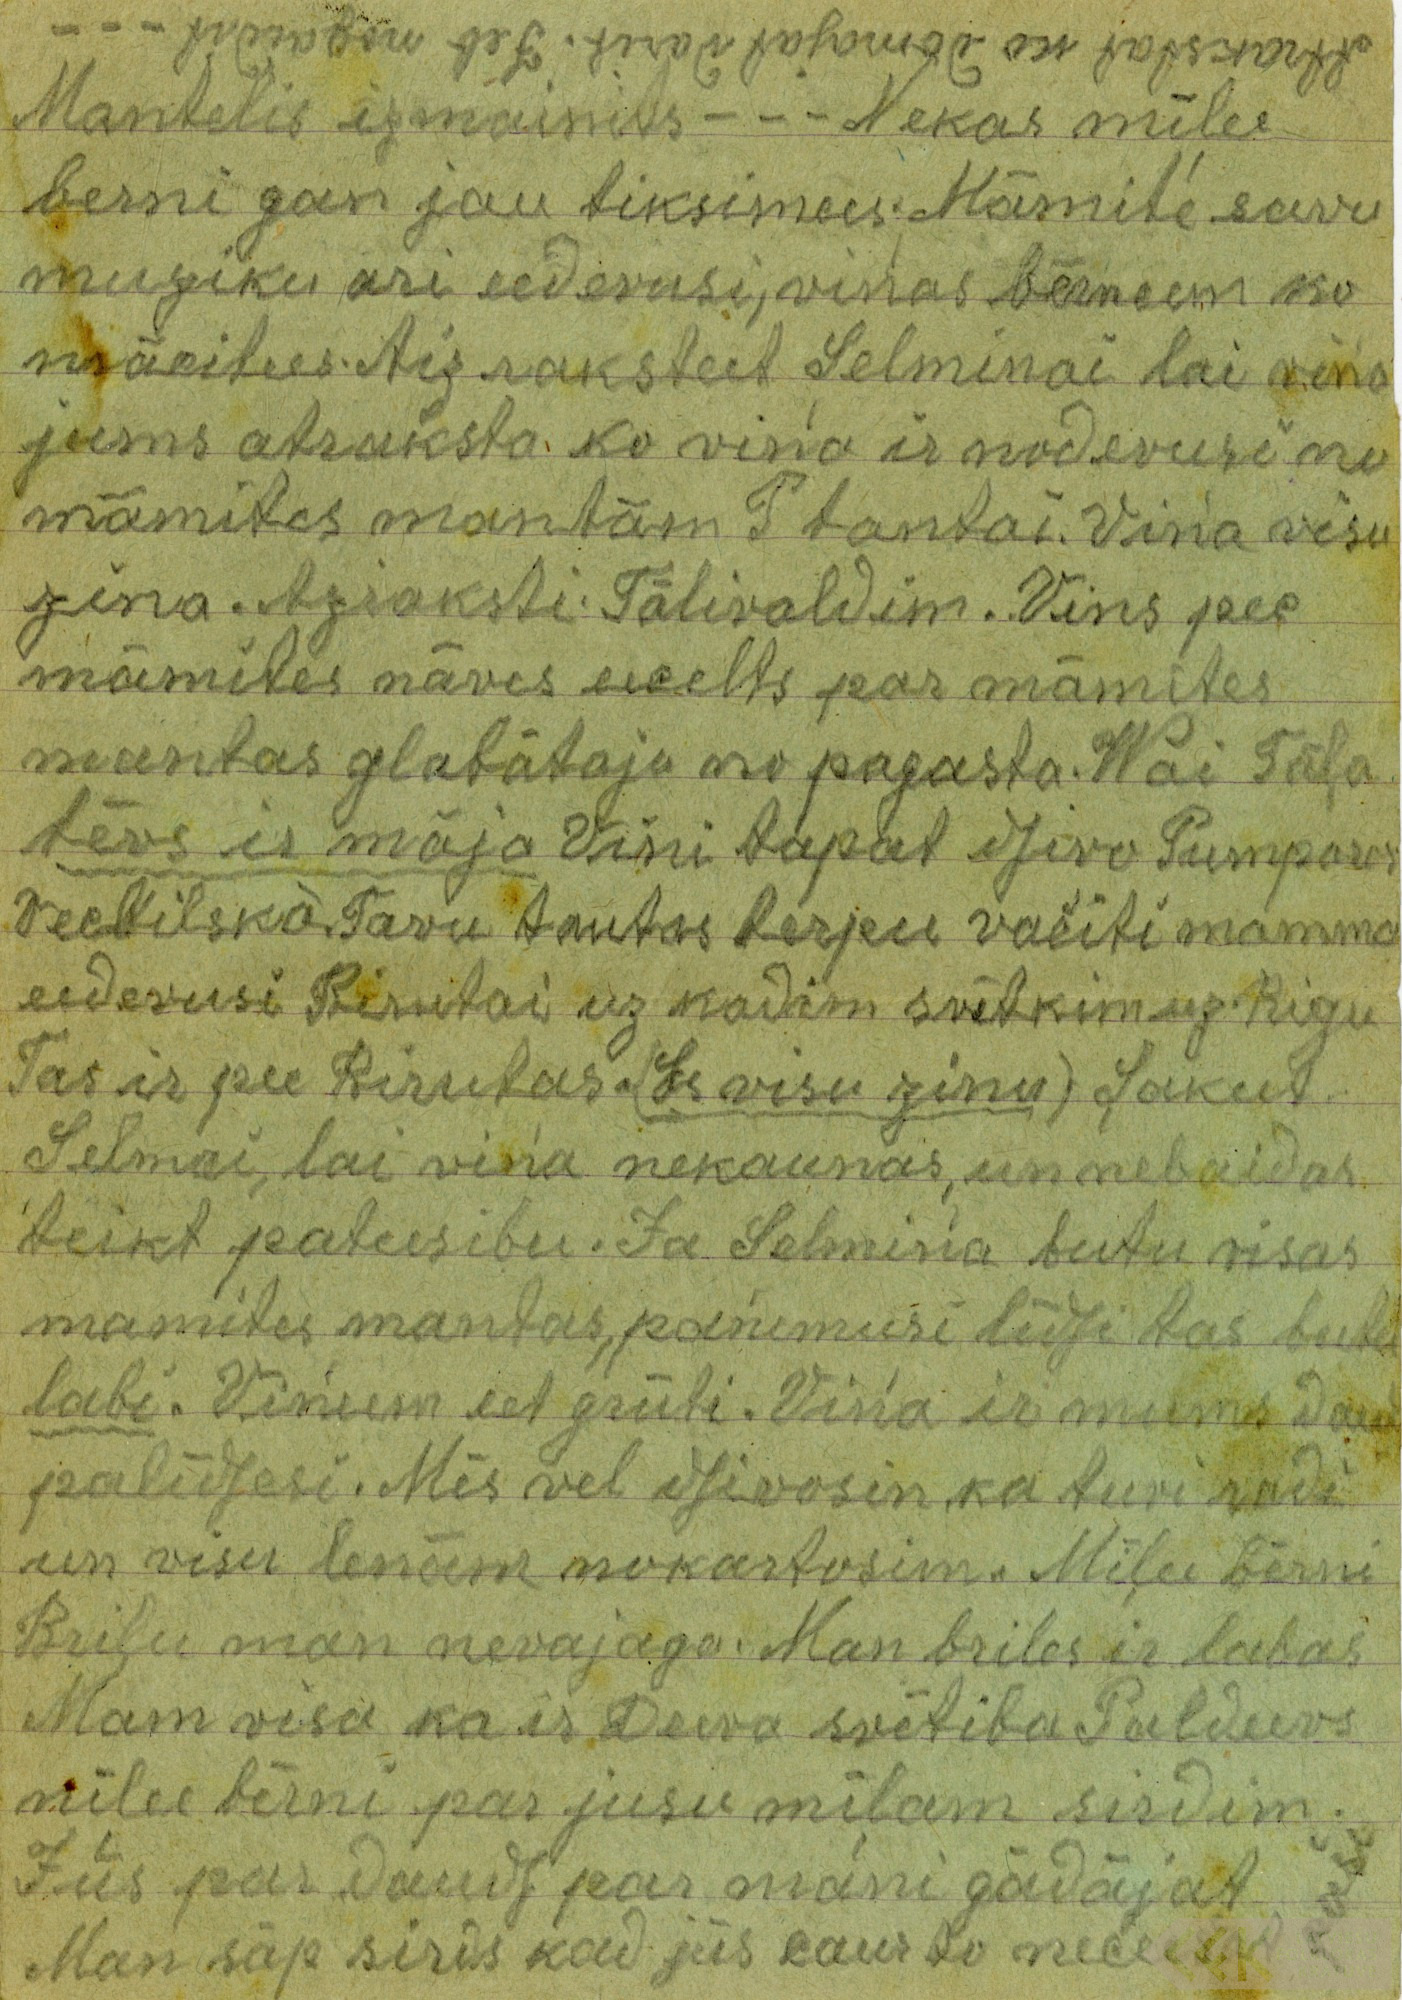 atrakstat ko domajat darit. Jeb negaidit - - -
Mantelis izmainits - - - Nekas mīlee
berni gan jau tiksimees. Māmite savu
muziku ari eedevusi, vinas bērneem ko
mācitees. Aizraksteet Selminai lai vina
jums atraksta ko vina ir nodevusi no
māmites mantām T tantai. Vina visu
zina. Azraksti Tālivaldim. Vins pec
māmites nāves eecelts par māmites
mantas glabātaju no pagasta. Wai Tāļa
tēvs ir māja Viņi tapat dsivo Pumpuros
Veclilskā. Tavu tautas terpu vaciti mamma
eedevusi Birutai uz kadim svētkim uz Rigu
Tas ir pee Birutas. (Es visu zinu) Sakeet
Selmai, lai vina nekaunas, un nebaidas
teikt pateesibu. Ja Selmina butu visas
mamites mantas, panemusi lidsi tas butu
labi. Vineem eet grūti. Vina ir mums daud
palidsesi. Mēs vel dsivosin, ka tuvi radi
un visu lenām nokartosim. Mīļee bērni
Briļu man nevajaga. Man briles ir labas
Mam visa ka ir Deeva svētiba Paldeevs
mīlee bērni par jusu mīlam sirdim.
Jūs par daudz par mani gādājat
Man sāp sirds kad jūs caur to neceesat